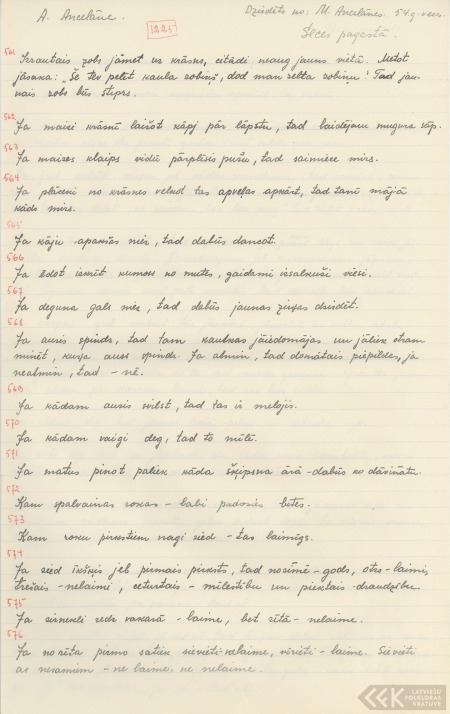 A. Ancelāne.
1225
Dzirdēts no: M. Ancelānes. 54.g.vecs.
Sēces pagastā.
561
Izrautais zobs jāmet uz krāsns, citādi neaug jauns vietā. Metot
jāsaka: „Še tev pelīt kaula zobiņš, dod man zelta zobiņu! Tad jau-
nais zobs būs stiprs.
562
Ja maizi krāsnī laižot kāpj pār lāpstu, tad laidējam mugura sāp.
563
Ja maizes klaips vidū pārplīsis pušu, tad saimniece mirs.
564
Ja plāceni no krāsnes velkot tas apveļas apkārt, tad tanī mājā
kāds mirs.
565
Ja kāju apakšas niez, tad dabūs dancot.
566
Ja ēdot izkrīt kumoss no mutes, gaidami izsalkuši viesi.
567
Ja deguna gals niez, tad dabūs jaunas ziņas dzirdēt.
568
Ja ausīs spindz, tad tam kautkas jāiedomājas un jāliek otram
minēt, kuŗa auss spindz. Ja atmin, tad domātais piepildas, ja
neatmin, tad – nē.
569
Ja kādam ausis svilst, tad tas ir melojis.
570
Ja kādam vaigi deg, tad to mīlē.
571
Ja matus pinot paliek kāda šķipsna ārā – dabūs ko dāvinātu.
572
Kam spalvainas rokas – labi padosies bites.
573
Kam roku pirkstiem nagi zied – tas laimīgs.
574
Ja zied īkšķis jeb pirmais pirksts, tad nozīmē – gods, otrs – laimi,
trešais – nelaimi, ceturtais – mīlestību un piektais – draudzību.
575
Ja zirnekli redz vakarā – laime, bet rītā – nelaime.
576
Ja no rīta pirmo satiek sievieti – nelaime, vīrieti – laime. Sievieti
ar nesamiem – ne laime, ne nelaime.
LATVIEŠU
FOLKLORAS
KRĀTUVE